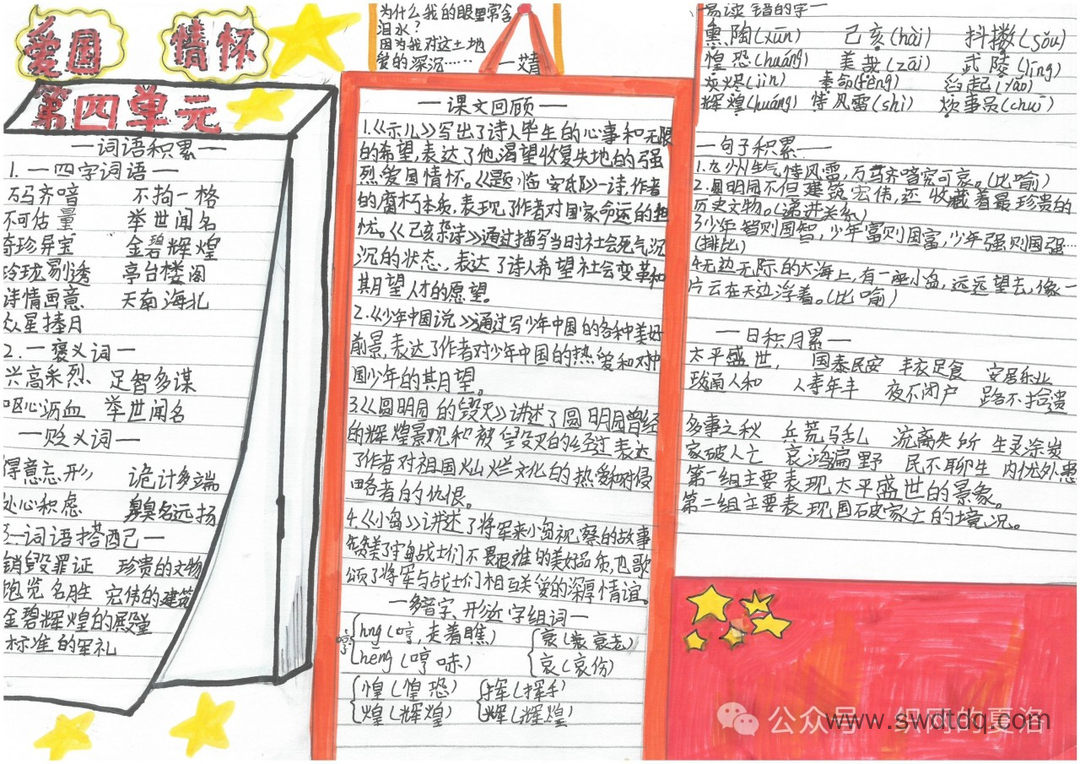 爱国 情怀
第四单元
一词语积累一
1.一四字词语一
万马齐喑 不拘一格
不可估量 举世闻名
奇珍异宝 金碧辉煌
玲珑剔透 亭台楼阁
诗情画意 天南海北
众星捧月
2.一褒义词一
兴高采烈 足智多谋
呕心沥血 举世闻名
一贬义词一
得意忘形 诡计多端
处心积虑 臭名远扬
3一词语搭配一
销毁罪证 珍贵的文物
饱览名胜 宏伟的建筑
金碧辉煌的殿堂
标准的军礼
为什么我的眼里常含
泪水?
因为我对这土地
爱的深沉……
一课文回顾一
1.《示儿》写出了诗人毕生的心事和无限
的希望,表达了他渴望收复失地的强
烈爱国情怀。《题临安邸》一诗,作者
的腐朽本质,表现了作者对国家命运的担
忧。《己亥杂诗》通过描写当时社会死气沉
沉的状态,表达了诗人希望社会变革和
期望人才的愿望。
2.《少年中国说》通过写少年中国的各种美好
前景,表达了作者对少年中国的热爱和对中
国少年的期望。
3.《圆明园的毁灭》讲述了圆明园曾经
的辉煌景观和被毁灭的经过表达
了作者对祖国灿烂文化的热爱和对侵
略者的仇恨。
4.《小岛》讲述了将军来小岛视察的故事
赞美了守岛战士们不畏艰难的美好品质,也歌
颂了将军与战士们相互关爱的深厚情谊。
一多音字,形近字组词一
hng(哼,走着瞧) 衰(衰老)
hēng(哼哧) 哀(哀伤)
惶(惶恐) 挥(挥手)
煌(辉煌) 辉(辉煌)
一易读错的字一
熏陶(xūn) 己亥(hài) 抖擞(sǒu)
惶恐(huáng) 美哉(zāi) 武陵(líng)
灰烬(jìn) 奉命(fèng) 舀起(yǎo)
辉煌(huáng) 恃风雷(shì) 炊事员(chuī)
一句子积累一
1.九州生气恃风雷,万马齐喑究可哀。(比喻)
2.圆明园不但建筑宏伟,还收藏着最珍贵的
历史文物。(递进关系)
3少年智则国智,少年富则国富,少年强则国强…
(排比)
4.无边无际的大海上,有一座小岛,远远望去,像一
片云在天边浮着。(比喻)
一日积月累一
太平盛世, 国泰民安 丰衣足食 安居乐业
政通人和 人寿年丰 夜不闭户 路不拾遗
多事之秋 兵荒马乱 流离失所 生灵涂炭
家破人亡 哀鸿遍野 民不聊生 内忧外患
第一组主要表现太平盛世的景象。
第二组主要表现国破家亡的境况。
公众号·织网的夏洛
www.swdtdq.com